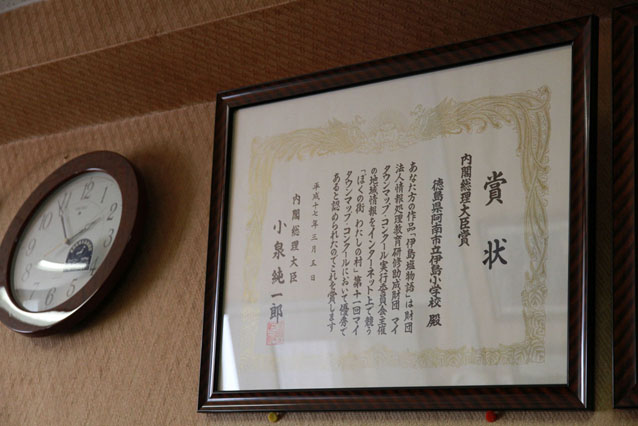 賞状
内閣総理大臣賞
徳島県阿南市立伊島小学校 殿
あなた方の作品「伊島塩物語」は財団
法人情報処理教育研修助成財団 マイ
タウンマップ・コンクール実行委員会主催
の地域情報をインターネット上で競う
「ぼくの街 わたしの村」第十一回マイ
タウンマップ・コンクールにおいて優秀で
あると認められたのでこれを賞します
平成十七年三月五日
内閣総理大臣
小泉純一郎